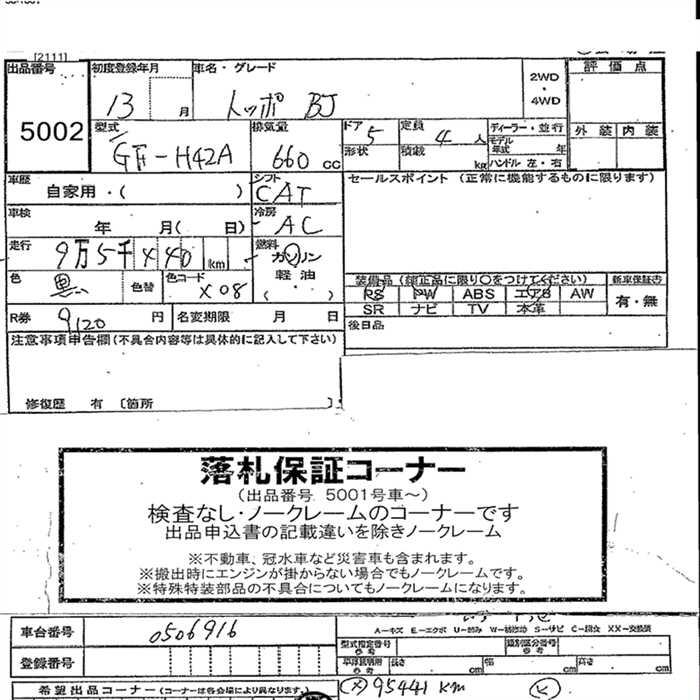 [2111]
出品番号 初度登録年月 車名・グレード 2WD・4WD 評価点
5002 13 月 トッポ BJ
型式 排気量 ドア 5 定員 4 人 ディーラー・並行 外装 内装
GF-H42A 660 cc 形状 積載 kg モデル年式 年 ハンドル 左・右
車歴 自家用・( ) シフト CAT セールスポイント (正常に機能するものに限ります)
車検 年 月( 日) 冷房 AC
走行 9万5千440 km 燃料 ガソリン・軽油 ( )
色 黒 色替 色コード X08 装備品(純正品に限り○をつけてください) 新車保証書
PS PW ABS エアB AW 有・無
SR ナビ TV 本革
R券 9120 円 名変期限 月 日 後日品
注意事項申告欄(不具合内容等は具体的に記入して下さい)
修復歴 有 〔箇所 〕
落札保証コーナー
(出品番号 5001号車~)
検査なし・ノークレームのコーナーです
出品申込書の記載違いを除きノークレーム
※不動車、冠水車など災害車も含まれます。
※搬出時にエンジンが掛からない場合でもノークレームです。
※特殊特装部品の不具合についてもノークレームになります。
車台番号 0506916
登録番号
希望出品コーナー(コーナーは各会場により異なります。)
型式指定番号 類別区分番号
長さ cm 幅 cm 高さ cm
95441 KM